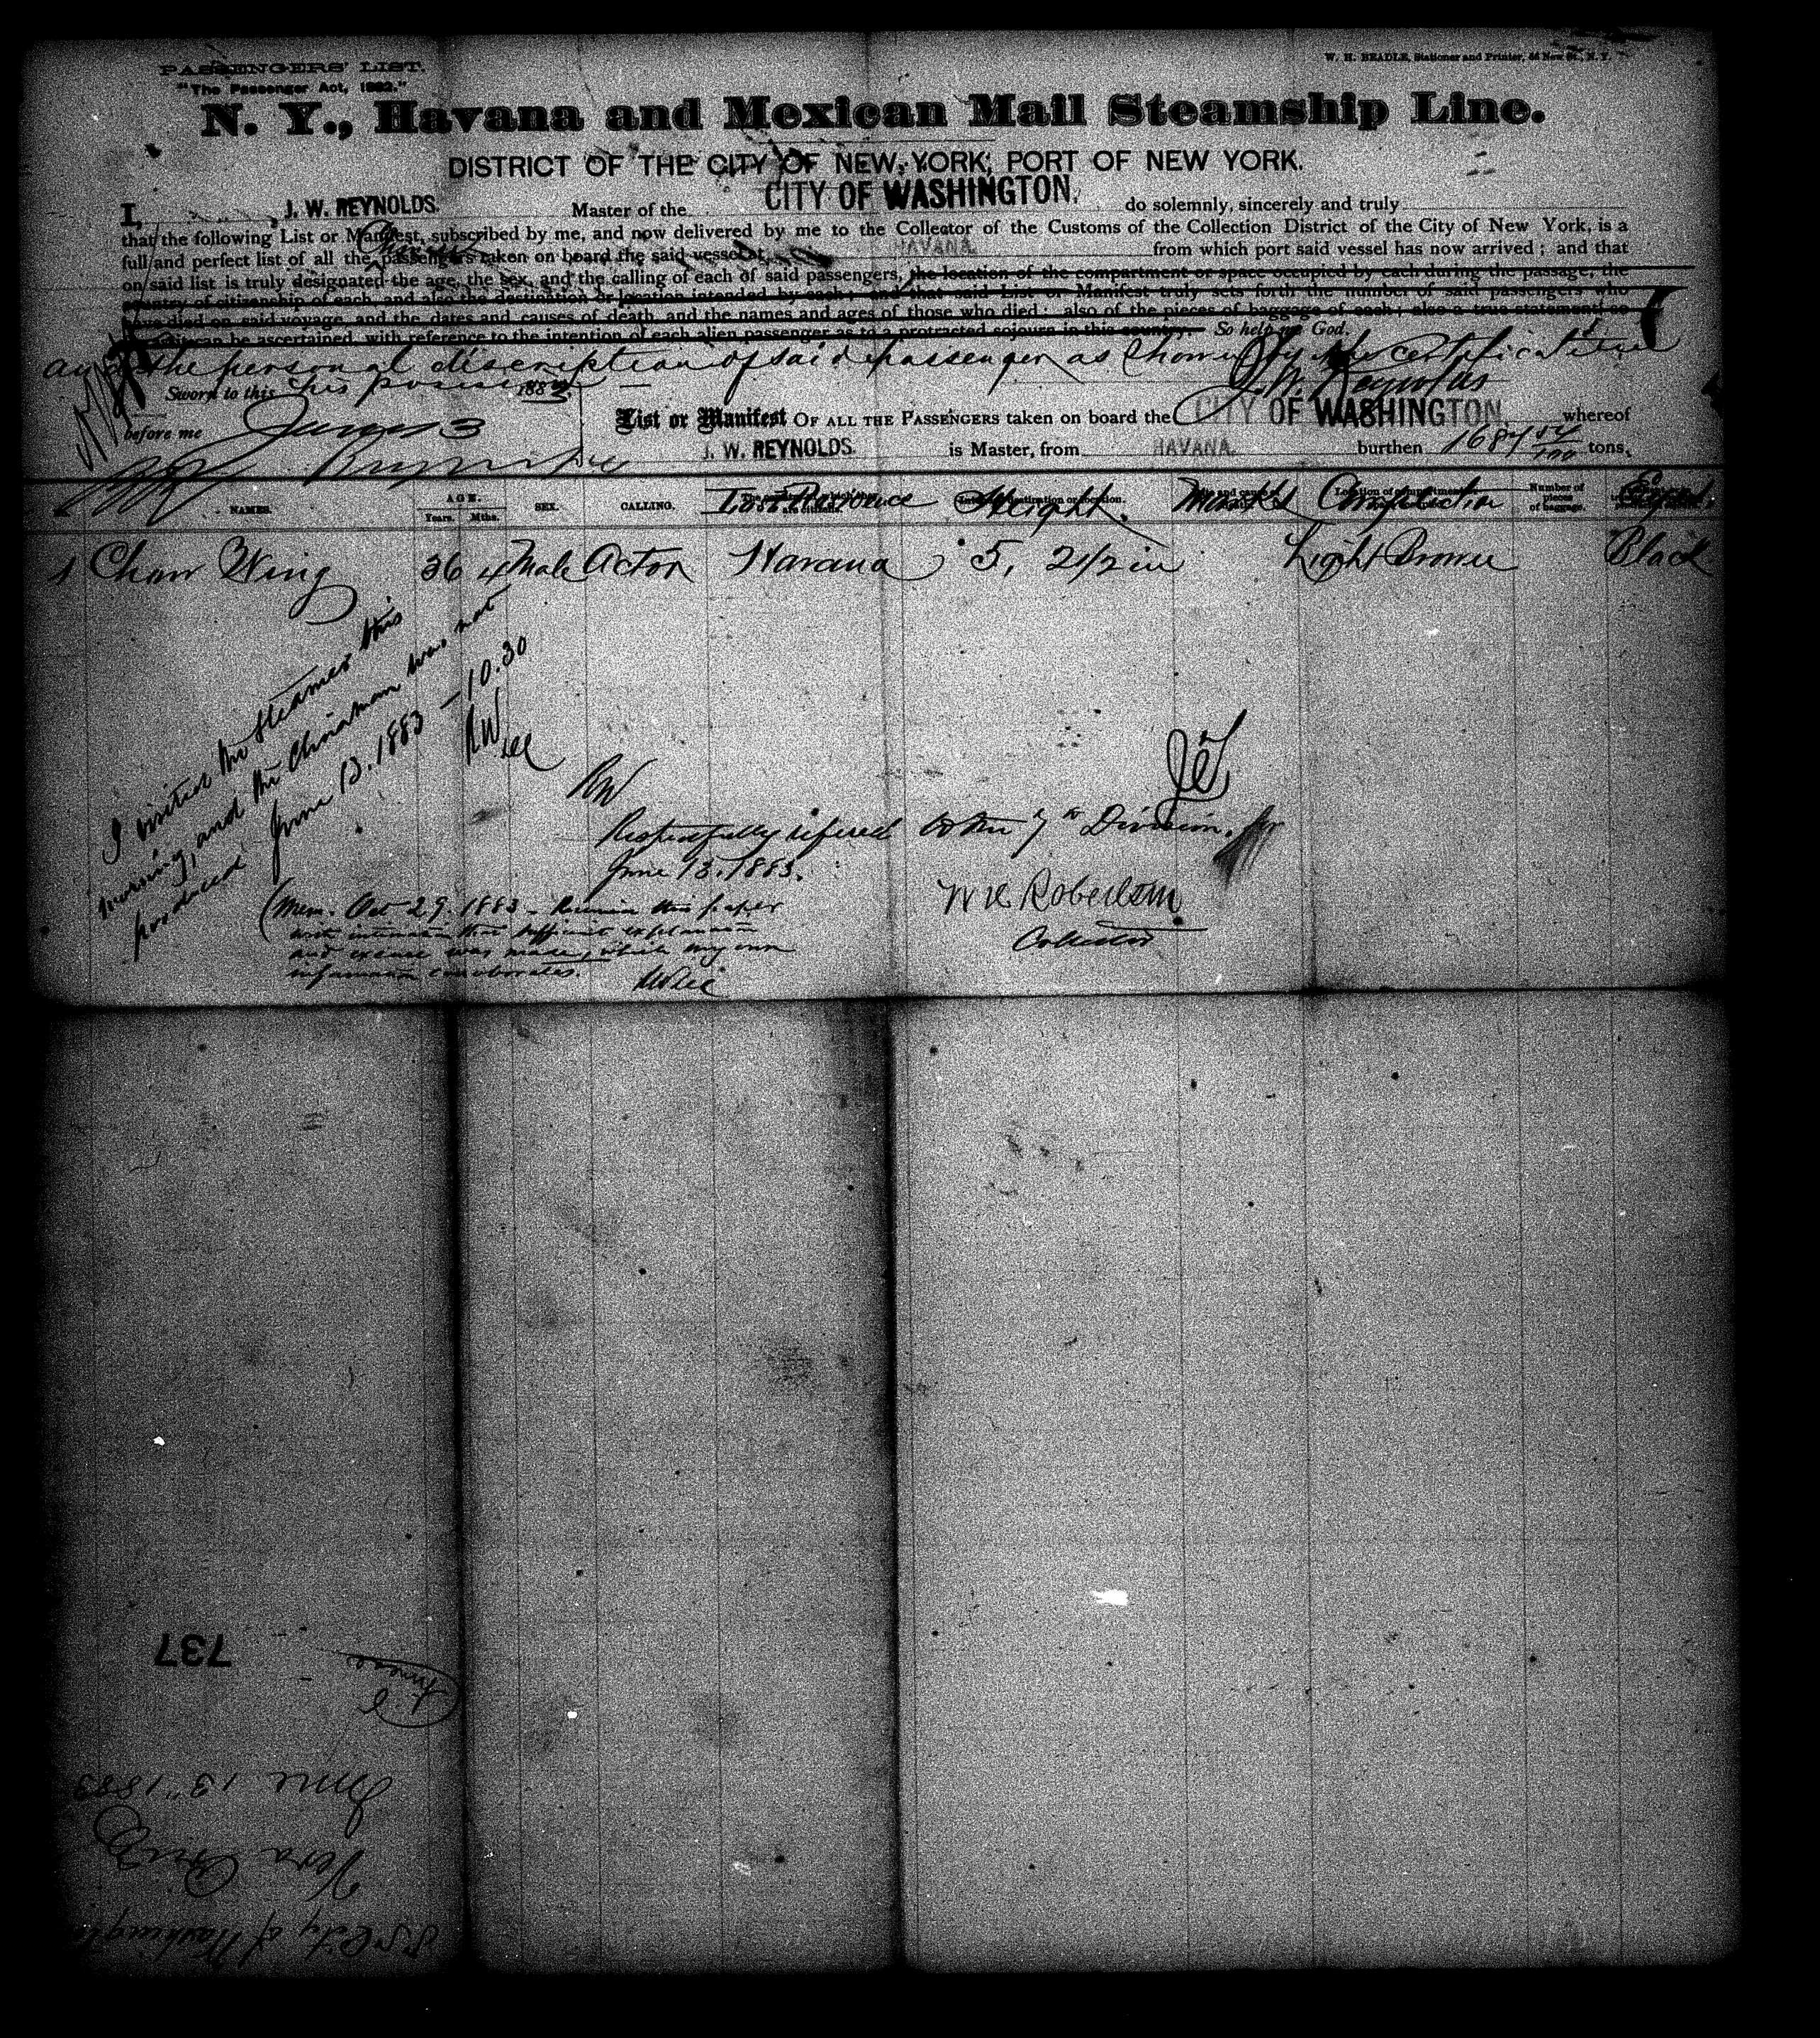 PASSENGERS' LIST.
"The Passenger Act, 1882."
W. H. BEADLE, Stationer and Printer, New St., N. Y.
N. Y., Havana and Mexican Mail Steamship Line.
DISTRICT OF THE CITY OF NEW YORK, PORT OF NEW YORK.
I, J. W. REYNOLDS. Master of the CITY OF WASHINGTON. do solemnly, sincerely and truly
that the following List or Manifest, subscribed by me, and now delivered by me to the Collector of the Customs of the Collection District of the City of New York, is a
full and perfect list of all the passengers taken on board the said vessel at HAVANA. from which port said vessel has now arrived; and that
on said list is truly designated the age, the sex, and the calling of each of said passengers, the location of the compartment or space occupied by each during the passage, the
country of citizenship of each, and also the destination or location intended by each; and that said List or Manifest truly sets forth the number of said passengers who
have died on said voyage, and the dates and causes of death, and the names and ages of those who died; also of the pieces of baggage of each; also a true statement so
can be ascertained, with reference to the intention of each alien passenger as to a protracted sojourn in this country. So help me God.
and the personal discription of said passenger as shown by the certificate in
his possession
J. W. Reynolds
Sworn to this June 13 1883
before me
List or Manifest OF ALL THE PASSENGERS taken on board the CITY OF WASHINGTON whereof
J. W. REYNOLDS. is Master, from HAVANA. burthen 1684 tons.
NAMES. AGE. Years. Mths. SEX. CALLING. Last Residence Height. Marks Complection Number of pieces of baggage. Eyes
1 Chow Wing 36 4 Male Actor Havana 5, 2 1/2 in Light Brown Black
I visited the steamer this
morning, and the Chinaman was not
produced June 13. 1883 — 10.30
RW
Respectfully refered to the 7th Division, for
June 13. 1883.
W H Robertson
Collector
(Mem. Oct 29. 1883 – Receive this paper
with intimation that sufficient explanation
and excuse was made, which my own
information corroborates.
737
Chinese
June 13" 1883
Vera Cruz
SS City of Washington